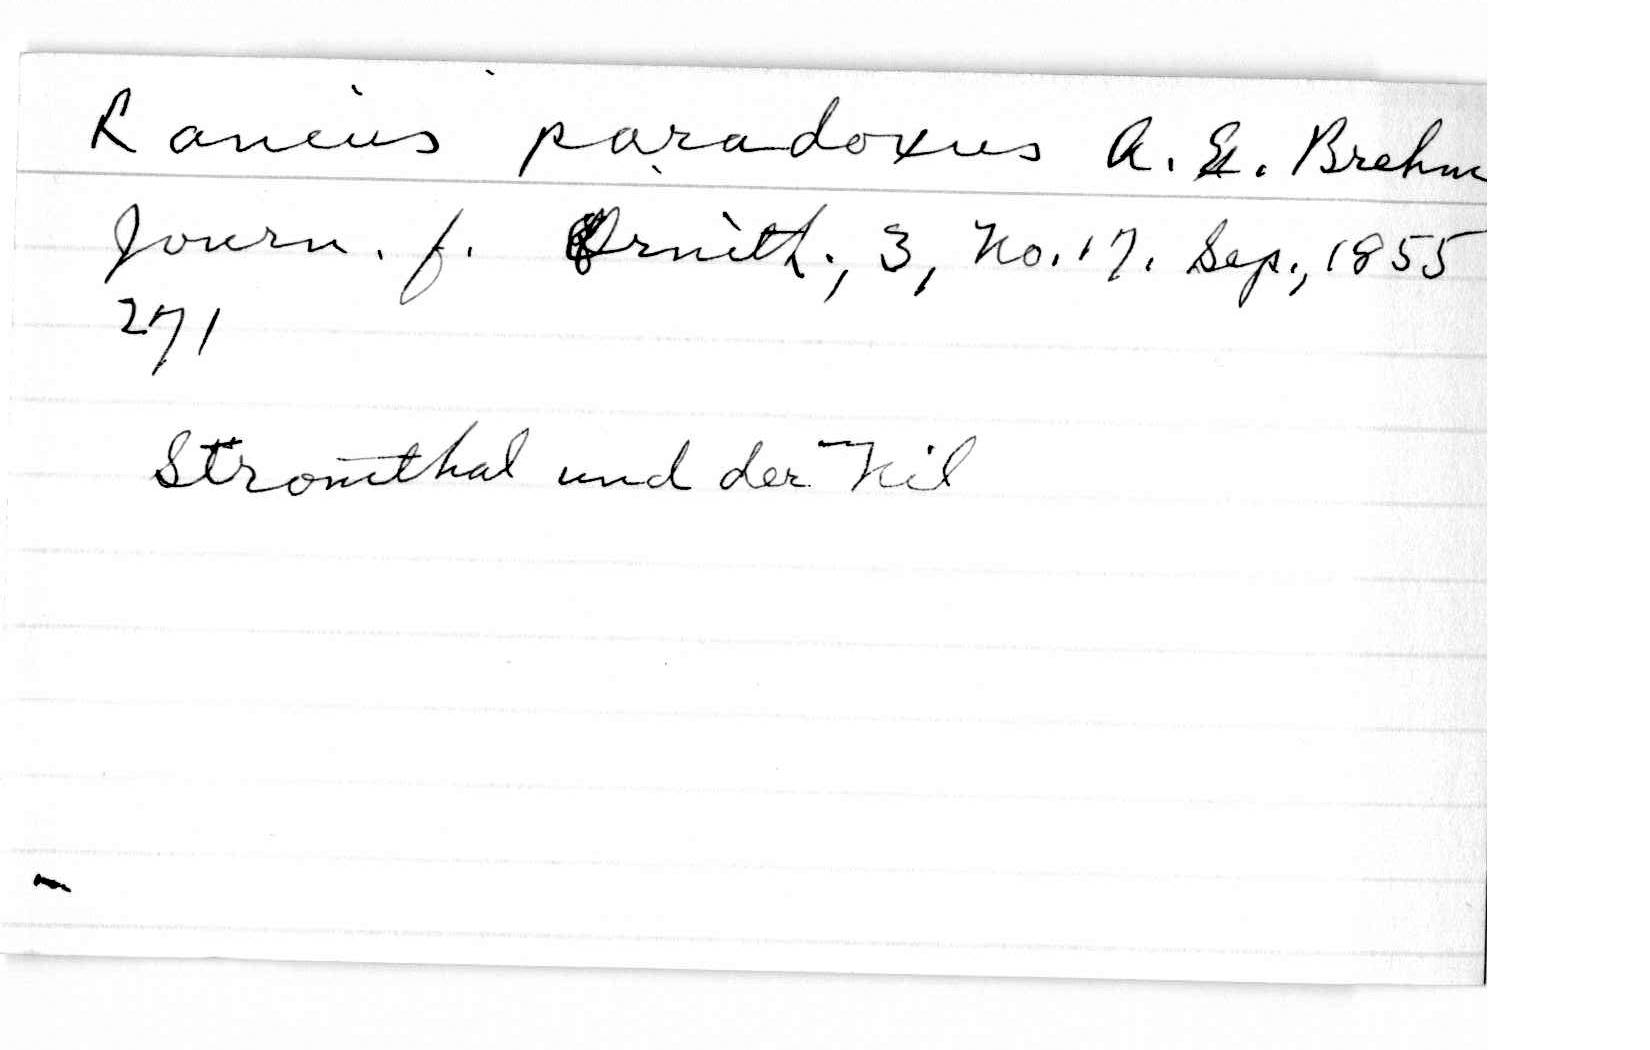 Lanius paradoxus A. E. Brehm
Journ. f. Ornith., 3, No. 17. Sep., 1855
271
Stromthal und der Nil